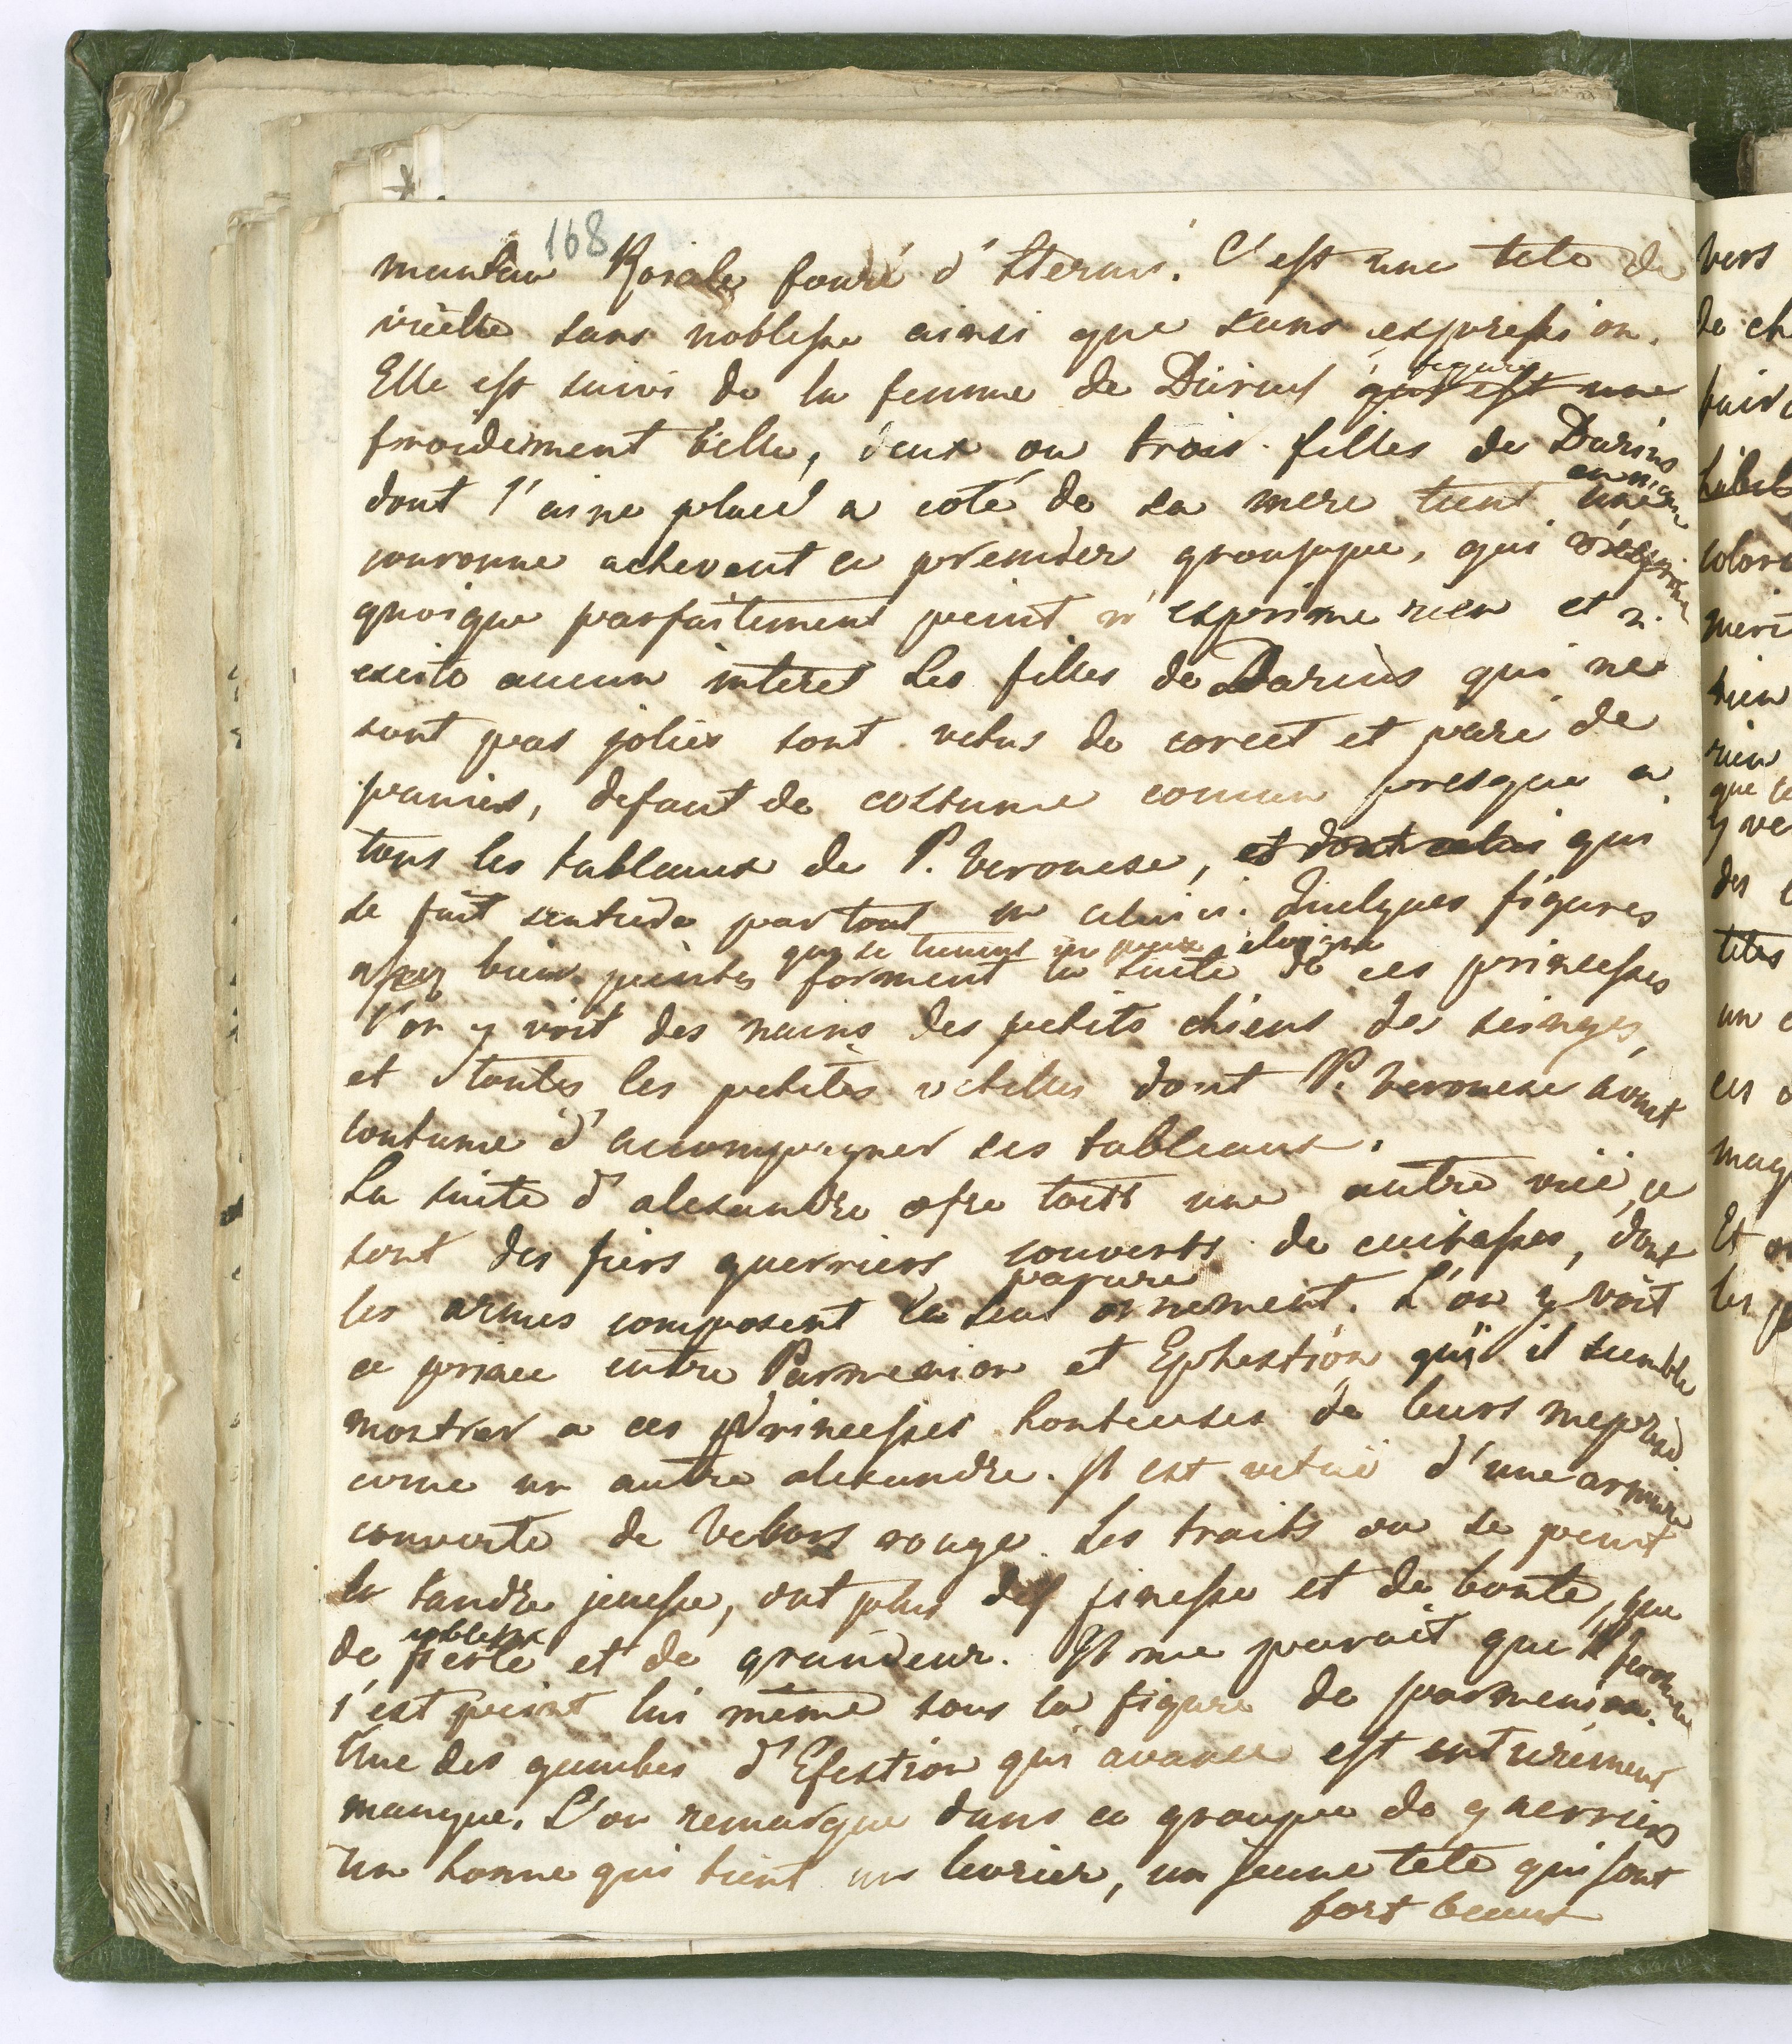 168
manteau Roiale fouré d'Hermi. C'est une tete de
vieille sans noblesse ainsi que sans expression.
Elle est suivi de la femme de Darius qui est une
figure
froidement belle, deux ou trois filles de Darius
dont l'aine placé a coté de sa mere tient une
couronne achevent ce premier grouppe, qui
quoique parfaitement peint n'exprime rien et n'
exite aucun interet Les filles de Darius qui ne
sont pas jolies sont vetus de corcet et paré de
paniers, defaut de costume comun presque a
tous les tableaux de P. Veronese, et dont celui qui
se fait sentir par tout Quelques figures
qui se tienent un peux eloigné
assez bien peintes forment la suite de ces princesses
l'on y voit des nains des petits chiens des seinges,
et toutes les petites vetilles dont P. Veronese avait
coutume d'accompagner ses tableaux.
La suite d'alexandre ofre toutt une autre vüe, ce
sont des fiers guerriers couverts de cuirasses, dont
parure
les armes composent la seul ornement. L'on y voit
ce prince entre Parmenion et Ephestion qui il semble
montrer a ces Princesses honteuses de leurs meprise
come un autre alexandre. Il est vetüe d'une armure
couverte de Velours rouge. Les traits ou se peint
la tandre jenesse, ont plus de finesse et de bonté, que
noblesse
de fierté et de grandeur. Il me parait que P. Veronese
s'est peint lui même sous la figure de parmenion.
Une des jambes d'Efestion qui avance est entierement
manque. L'on remarque dans ce groupe de guerriers
Un homme qui tient un levrier, un jeune tete qui sont
fort beaux